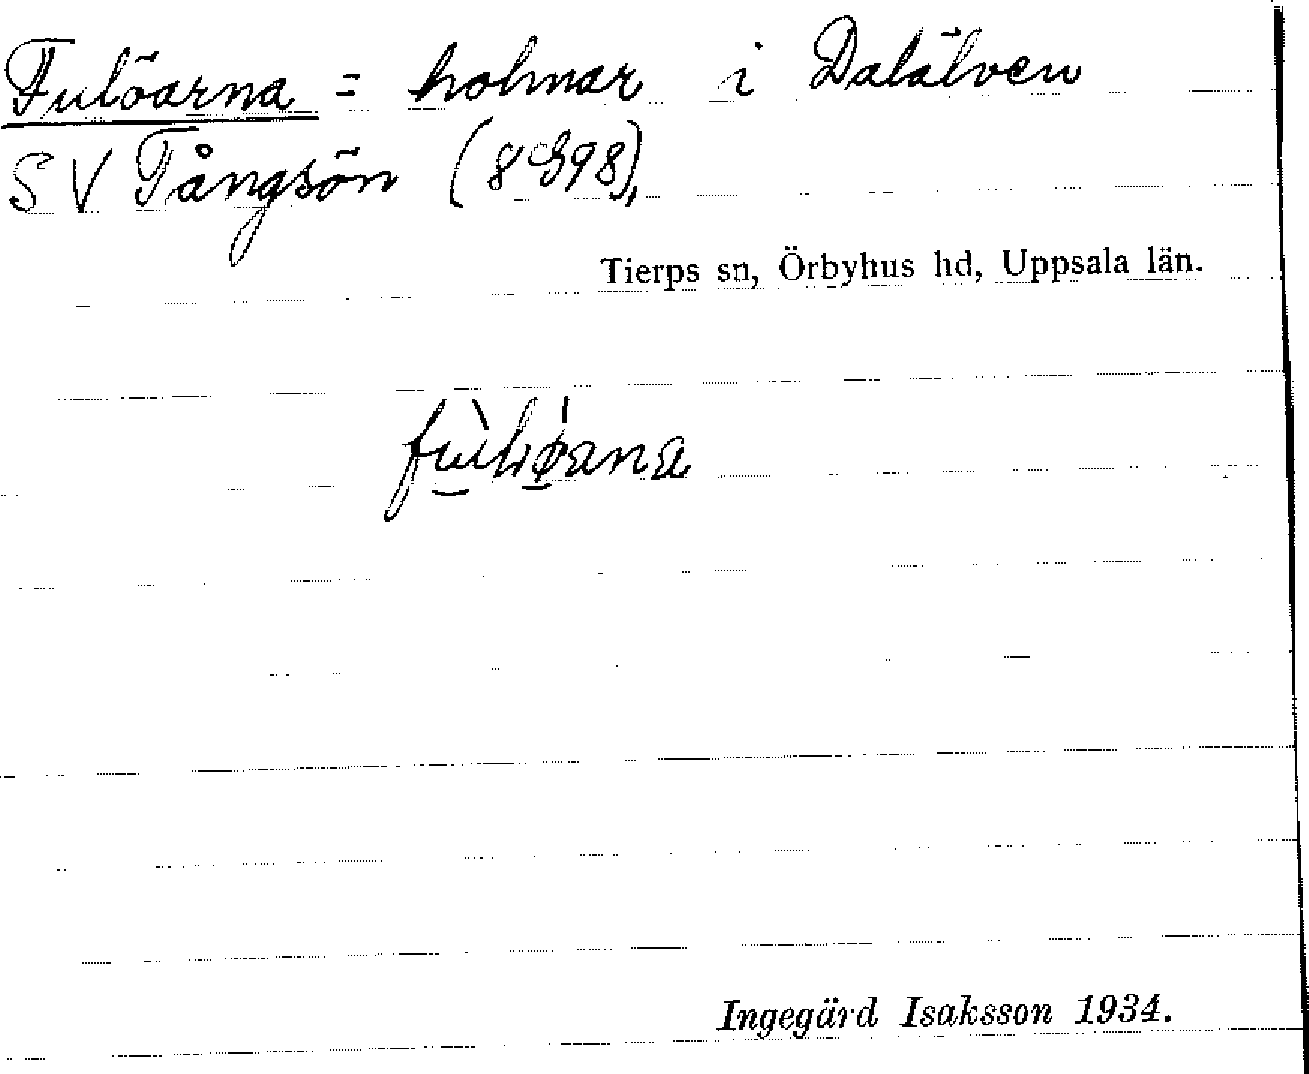 Fulöarna = holmar i Dalälven
SV Tångsön
Tierps sn, Örbyhus hd, Uppsala län.
Ingegärd Isaksson 1934.